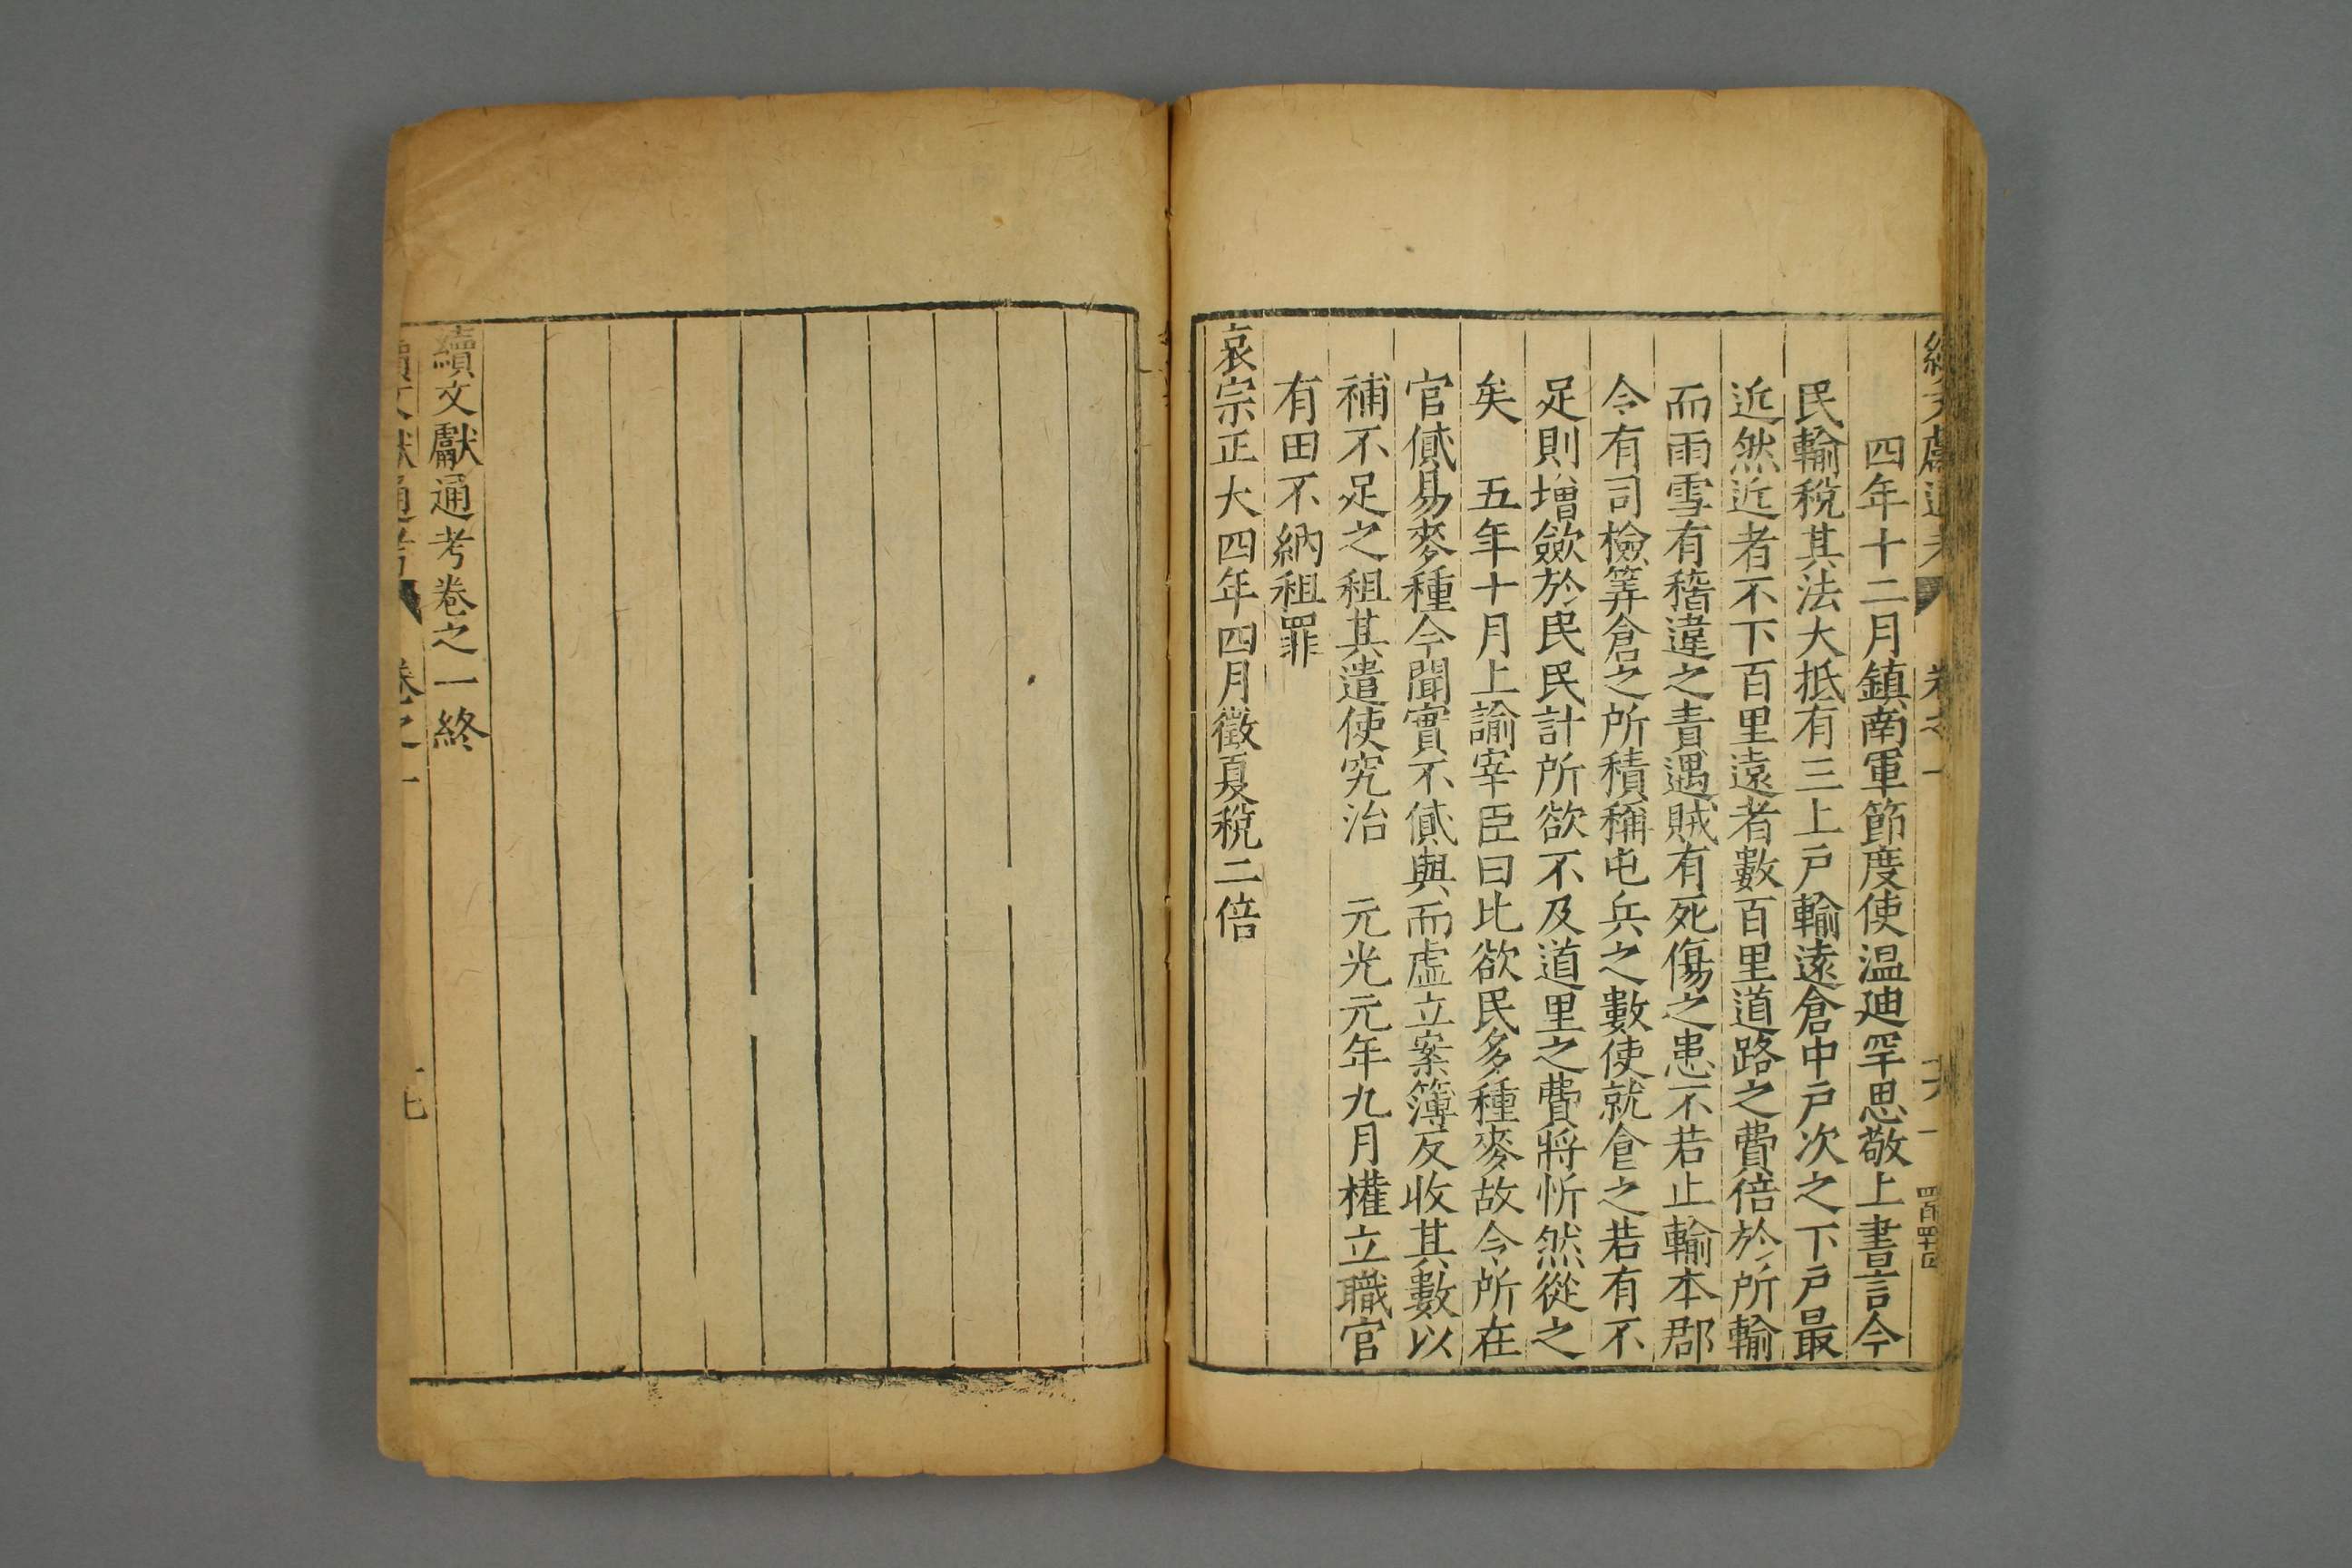 續文獻通考 卷之一
四百四十四
四年十二月鎮南軍節度使温廸罕思敬上書言今
民輸稅其法大抵有三上戸輸遠倉中戸次之下戸最
近然近者不下百里遠者數百里道路之費倍於所輸
而雨雪有稽違之責遇賊有死傷之患不若止輸本郡
令有司檢筭倉之所積稱屯兵之數使就食之若有不
足則增歛於民民計所欲不及道里之費將忻然從之
矣 五年十月上諭宰臣曰比欲民多種麥故令所在
官貸易麥種今聞實不貸與而虛立案簿反收其數以
補不足之租其遣使究治 元光元年九月權立職官
有田不納租罪
哀宗正大四年四月徵夏稅二倍
續文獻通考卷之一終
續文獻通考 卷之一